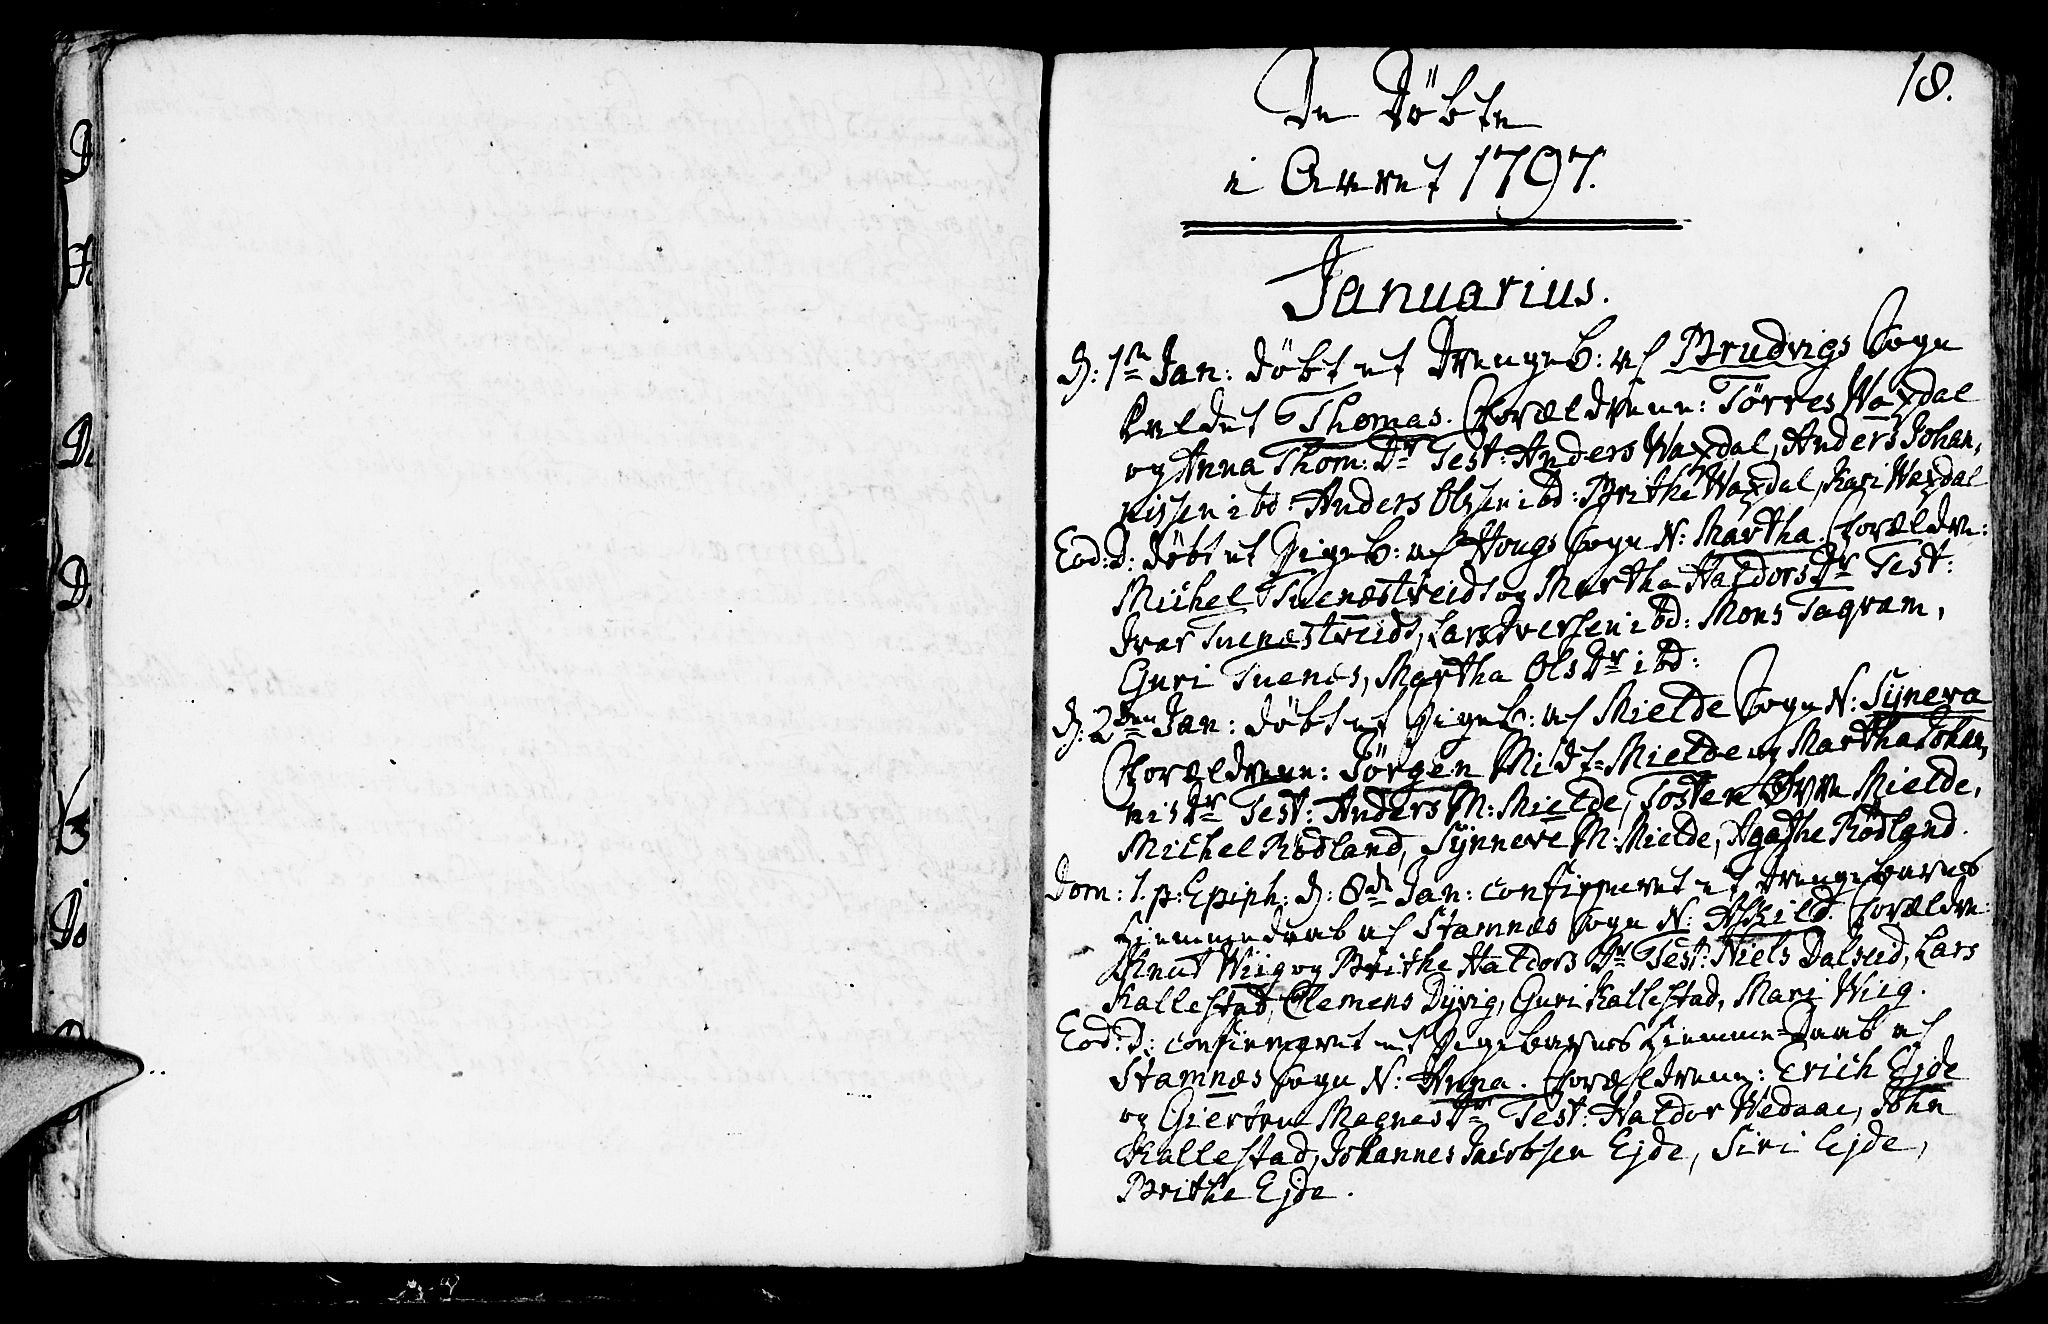 18.
De Döbte
i Aaret 1797.
Januarius.
D: 1ste Jan: döbt et Drengeb: af Brudvigs Sogn
kaldet Thomas. Forældrene: Törres Waxdal
og Anna Thom: Dr Test: Anders Waxdal, Anders Johan,
nissen ibd: Anders Olsen ibd: Brithe Waxdal, Kari Waxdal
Eod: D: döbt et Pigeb: af Hougs Sogn N: Martha. Forældre:
Michel Tuenæstveidt og Martha Haldors Dr Test:
Ivar Tuenæstveidt, Lars Iversen ibd: Mons Taqvam,
Guri Tuenes, Martha Ols Dr ibd:
D: 2den Jan: döbt et Pigeb: af Mielde Sogn N: Syneva
Forældrene: Jörgen Midt-Mielde og Martha Johan,
nis Dr Test: Anders M: Mielde, Tosten Øvre Mielde,
Michel Rödland, Synneve M: Mielde, Agathe Rödland.
Dom: 1. p: Epiph: D: 8de Jan: confirmeret et Drengebarns
Hiemmedaab af Stamnæs Sogn N: Askild. Forældre:
Knut Wiig og Brithe Haldors Dr Test: Niels Dalseid, Lars
Kallestad, Clemens Dyvig, Guri Kallestad, Mari Wiig.
Eod: D: confirmeret et Pigebarns Hiemme-Daab af
Stamnæs Sogn N: Anna. Forældrene: Erich Ejde
og Giertru Magnes Dr Test: Haldor Hedaae, John
Kallestad, Johannes Jacobsen Ejde, Siri Ejde,
Brithe Ejde.